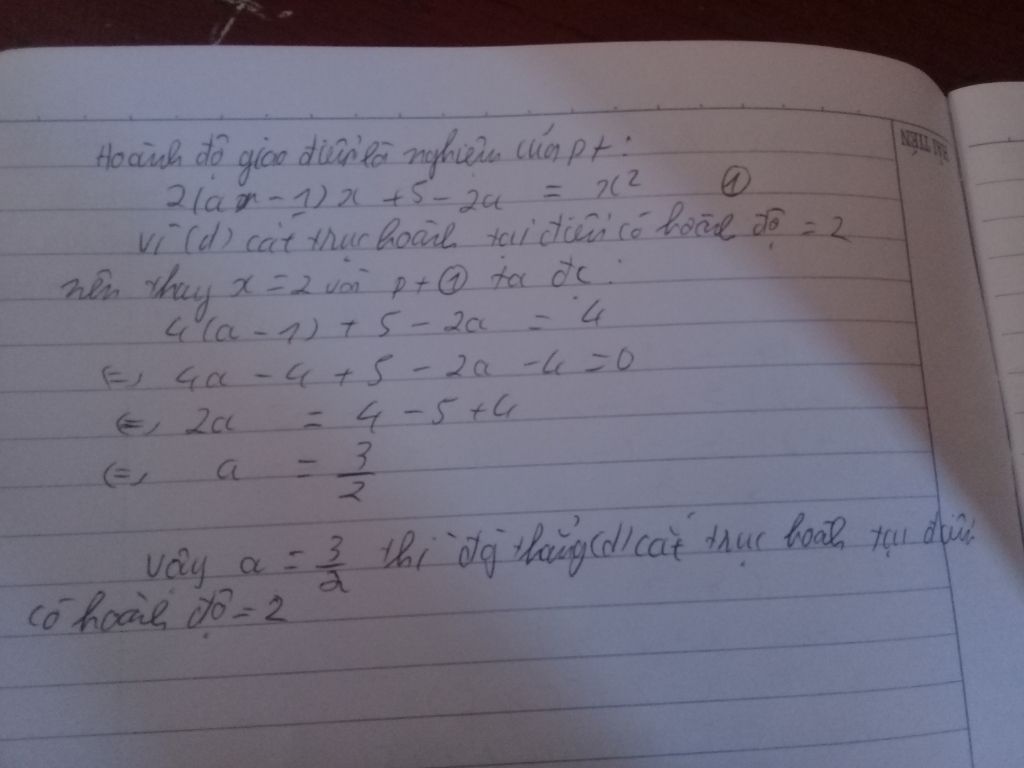 Hoành độ giao điểm là nghiệm của pt:
2(a - 1)x + 5 - 2a = x² ①
Vì (d) cắt trục hoành tại điểm có hoành độ = 2
nên thay x = 2 vào pt ① ta đc:
4(a - 1) + 5 - 2a = 4
⇔ 4a - 4 + 5 - 2a - 4 = 0
⇔ 2a = 4 - 5 + 4
⇔ a = 3/2
Vậy a = 3/2 thì đg thẳng (d) cắt trục hoành tại điểm
có hoành độ = 2